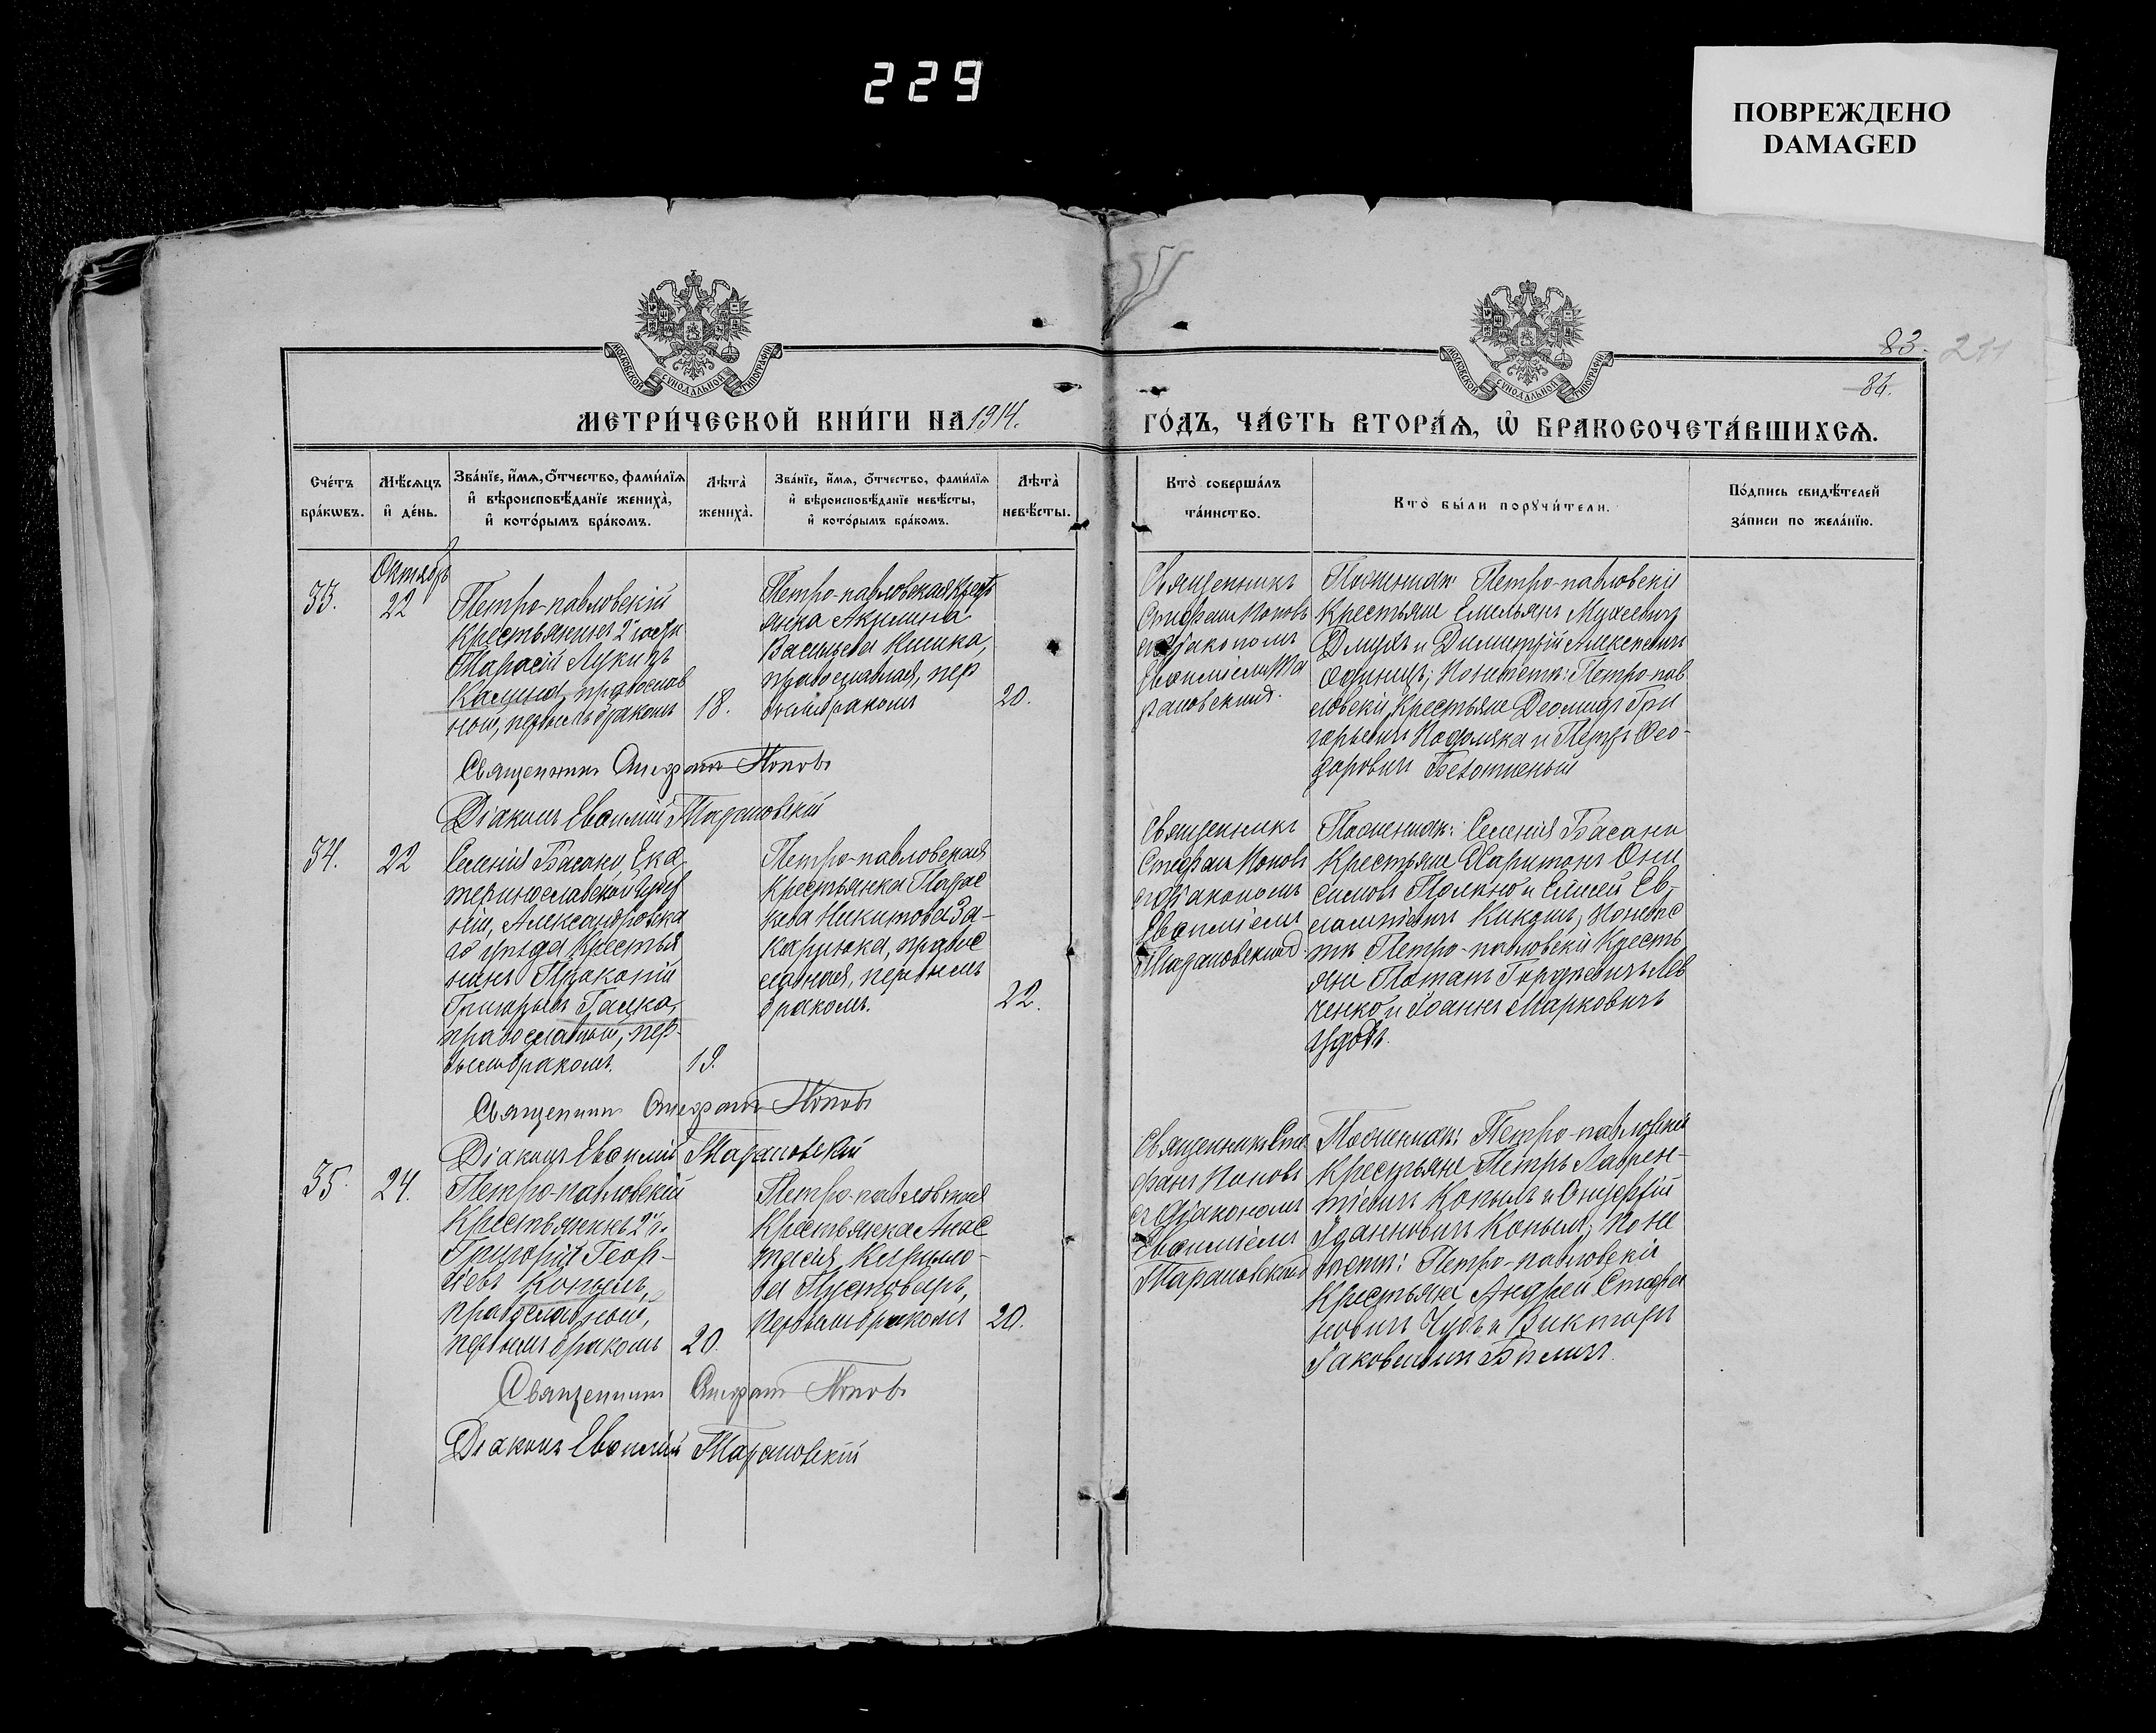 229
ПОВРЕЖДЕНО
DAMAGED
МОСКОВСКОЙ СѴНОДАЛЬНОЙ ТИПОГРАФІИ
МОСКОВСКОЙ СѴНОДАЛЬНОЙ ТИПОГРАФІИ
83. 211
84.
МЕТРИ́ЧЕСКОЙ КНИ́ГИ НА 1914.
ГО́ДЪ, ЧА́СТЬ ВТОРА́Ѧ, Ѡ҆ БРАКОСОЧЕТА́ВШИХСѦ.
Сче́тъ бра́кѡвъ.
Мѣ́сѧцъ и҆ де́нь.
Зва́нїе, и҆́мѧ, ѻ҆́тчество, фами́лїѧ
и҆ вѣроисповѣ́данїе жениха̀,
и҆ кото́рымъ бра́комъ.
Лѣта̀ жениха̀.
Зва́нїе, и҆́мѧ, ѻ҆́тчество, фами́лїѧ
и҆ вѣроисповѣ́данїе невѣ́сты,
и҆ кото́рымъ бра́комъ.
Лѣта̀ невѣ́сты.
Кто̀ соверша́лъ та́инство.
Кто̀ бы́ли порꙋчи́тели.
По́дпись свидѣ́телей
за́писи по жела́нїю.
33.
Октябрь
22
Петро-павловскій
крестьянинъ 2
Тарасій Лукичъ
Калина, православ
ной, первымъ бракомъ
18.
Петро-павловская крест
янка Акилина
Васильева Кишка,
православная, пер
вымъ бракомъ
20.
Священникъ
Стефанъ Поповъ
съ діакономъ
Евѳиміемъ Та
рановскимъ.
По женихѣ: Петро-павловскіе
крестьяне Емельянъ Мухеевичъ
Дмухъ и Димитрій Алексеевичъ
Одинецъ; По невѣстѣ: Петро-пав
ловскіе крестьяне Деомидъ Гри
горьевичъ Подоляка и Петръ Ѳео-
доровичъ
Священникъ Стефанъ Поповъ
Діаконъ Евѳимій Тарановскій
34.
22
Селенія Басани, Ека
теринославской Губер
ніи, Александровска
го уѣзда крестья
нинъ Прокопій
Григорьевъ Галка,
православный, пер-
вымъ бракомъ.
19.
Петро-павловская
крестьянка Парас
кева Никитова За-
карлюка, правос
лавная, первымъ
бракомъ.
22.
Священникъ
Стефанъ Поповъ
съ діакономъ
Евѳиміемъ
Тарановскимъ
По женихѣ: Селенія Басани
крестьяне Харитонъ Они
симовъ и Елисей Ев-
лампіевичъ По невѣс
тѣ Петро-павловскіе кресть
яне Потапъ Гордѣевичъ Лев
ченко и Іоаннъ Марковичъ
Удодъ.
Священникъ Стефанъ Поповъ
Діаконъ Евѳимій Тарановскій
35.
24.
Петро-павловскій
крестьянинъ 2
Григорій Геор-
гіевъ Копылъ,
православной,
первымъ бракомъ
20.
Петро-павловская
крестьянка Анас
тасія Кирило-
ва Пустоваръ,
первымъ бракомъ
20.
Священникъ Сте
фанъ Поповъ
съ діакономъ
Евѳиміемъ
Тарановскимъ
По женихѣ: Петро-павловскіе
крестьяне Петръ Лаврен-
тіевичъ Копылъ и Онуфрій
Іоанновичъ Копылъ; По не
вѣстѣ: Петро-павловскіе
крестьяне Андрей Стефа
новичъ Чубъ и Викторъ
Іаковлевичъ
Священникъ Стефанъ Поповъ
Діаконъ Евѳимій Тарановскій